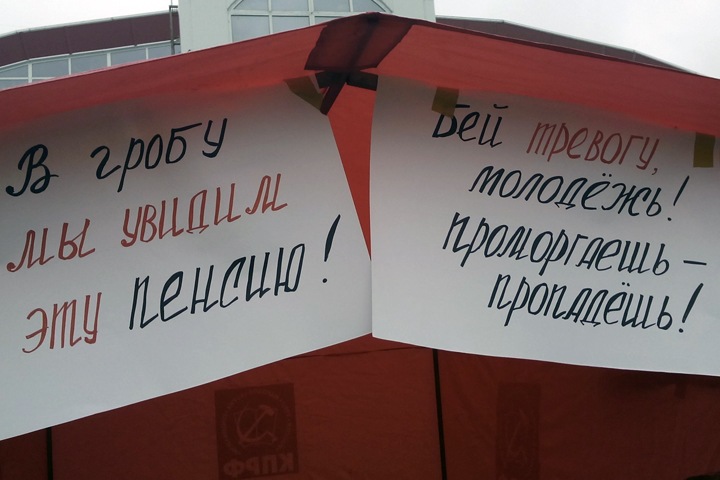 В гробу
мы увидим
эту пенсию!
Бей тревогу,
молодёжь!
проморгаешь –
пропадёшь!
КПРФ